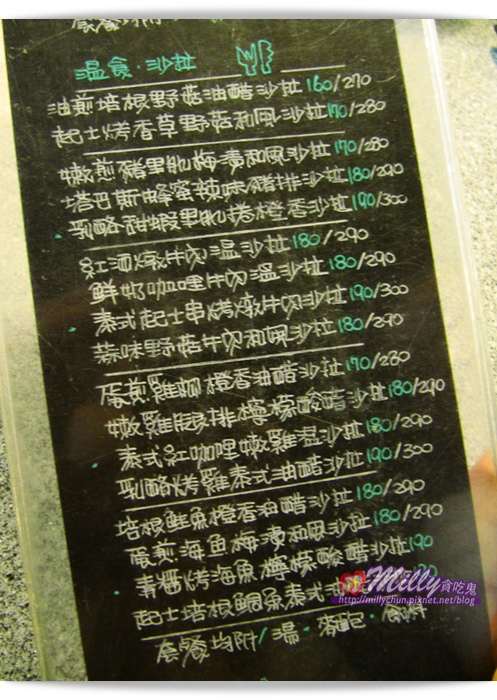 套餐均附
溫食·沙拉
油煎培根野菇油醋沙拉160/270
起士烤香草野菇和風沙拉170/280
嫩煎豬里肌梅漬和風沙拉170/280
塔巴斯蜂蜜辣味豬排沙拉180/290
乳酪甜蝦里肌烤橙香沙拉190/300
紅酒燉牛肉溫沙拉180/290
鮮奶咖哩牛肉溫沙拉180/290
泰式起士串烤嫩牛肉沙拉190/300
蒜味野菇牛肉和風沙拉180/290
蛋煎雞柳橙香油醋沙拉170/280
嫩雞腿排檸檬酸醋沙拉180/290
泰式紅咖哩嫩雞溫沙拉180/290
乳酪烤雞泰式油醋沙拉190/300
培根鮭魚橙香油醋沙拉180/290
蛋煎海魚梅漬和風沙拉180/290
青醬烤海魚檸檬酸醋沙拉190
起士培根鯛魚泰式
套餐均附/湯·
Milly貪吃鬼
http://millychun.pixnet.net/blog